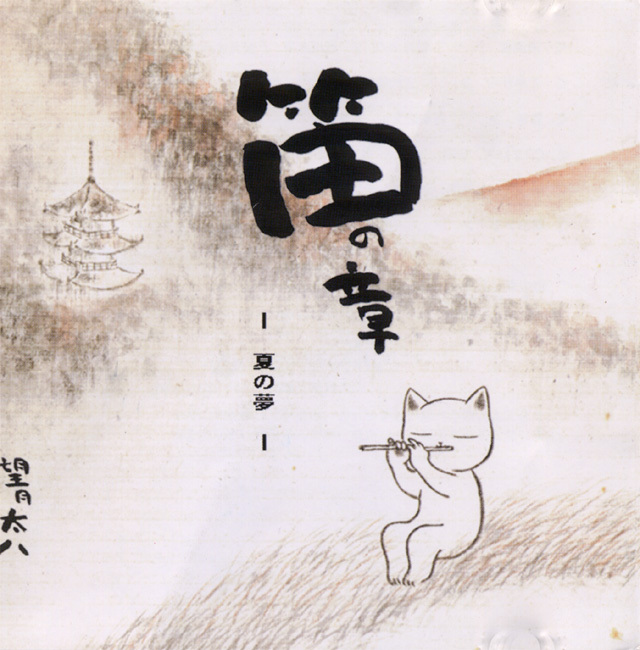 笛の章
― 夏の夢 ―
望月太八